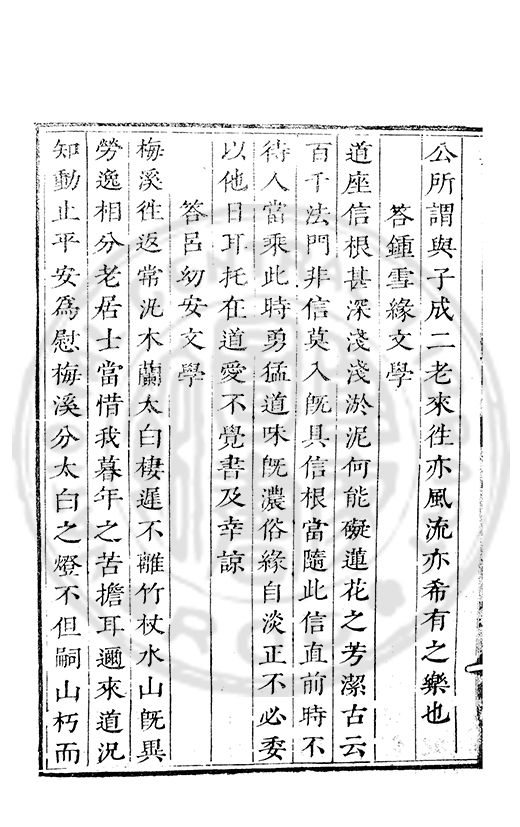 公所謂與子成二老來徃亦風流亦希有之樂也
答鍾雪緣文學
道座信根甚深淺淺淤泥何能礙蓮花之芳潔古云
百千法門非信莫入旣具信根當隨此信直前時不
待人當乘此時勇猛道味旣濃俗緣自淡正不必委
以他日耳托在道愛不覺書及幸諒
答呂幼安文學
梅溪徃返常汎木蘭太白棲遲不離竹杖水山旣異
勞逸相分老居士當惜我暮年之苦擔耳邇來道況
知動止平安爲慰梅溪分太白之燈不但嗣山朽而